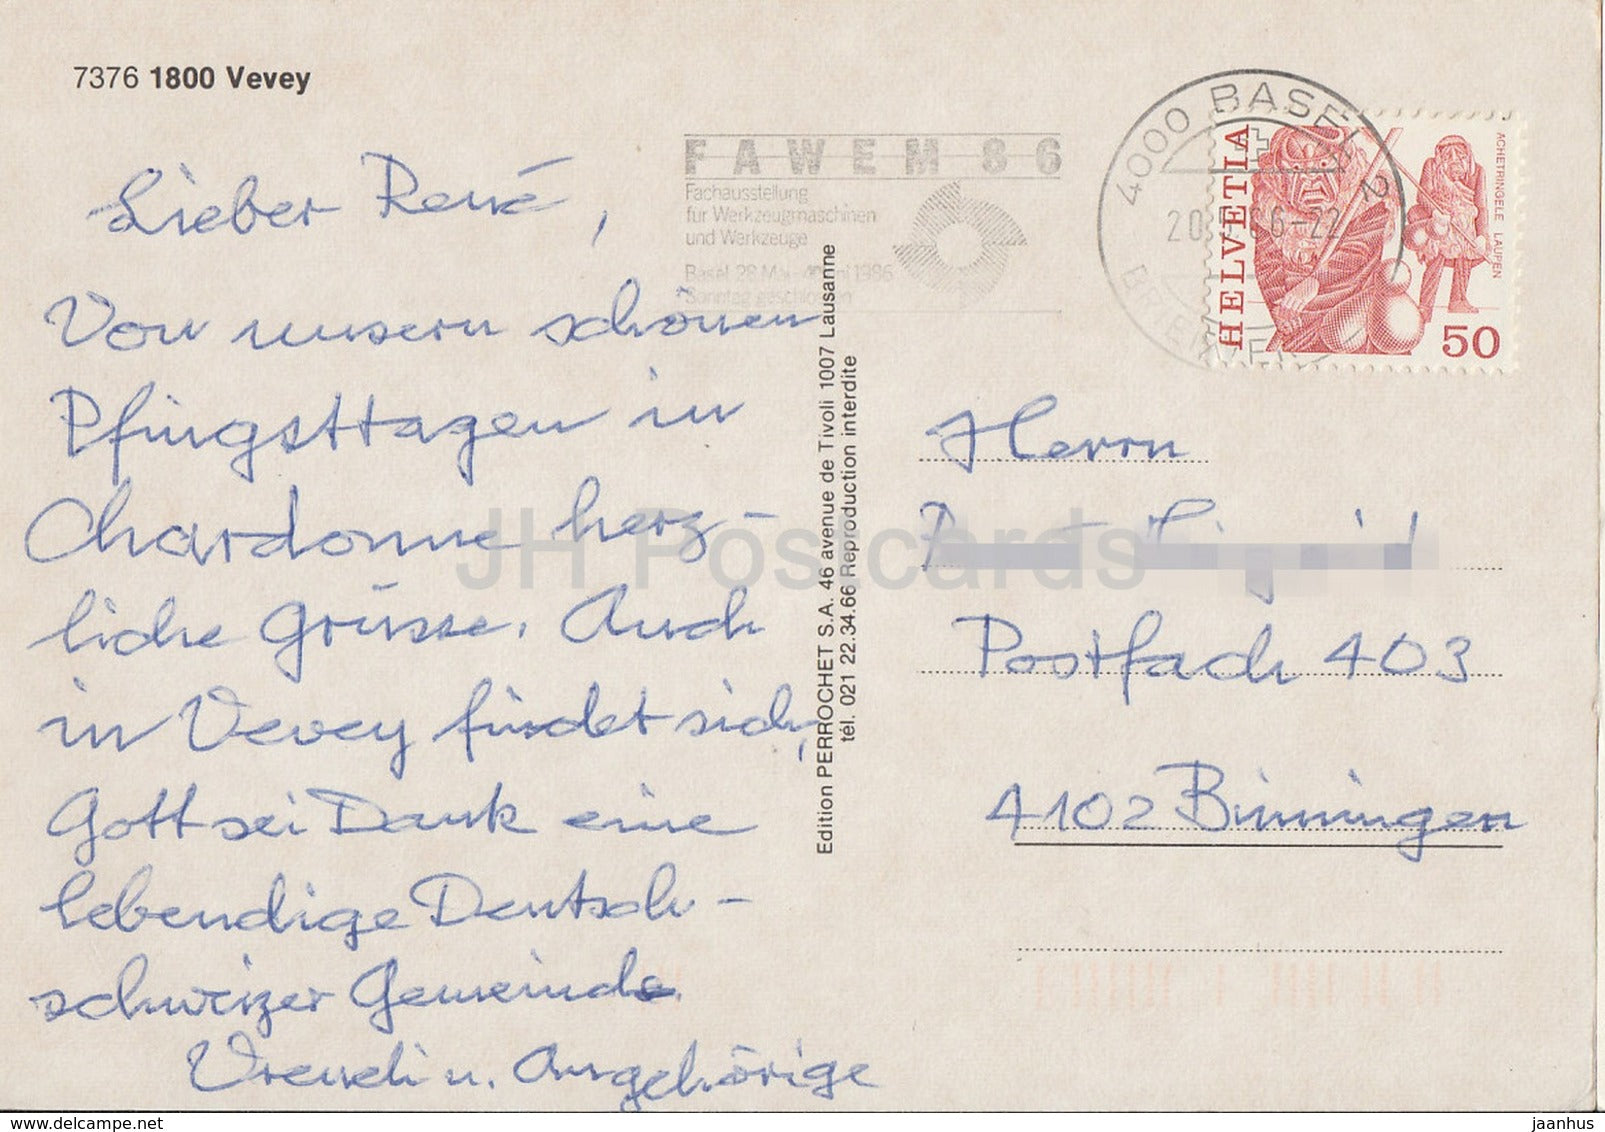 7376 1800 Vevey
Lieber René,
Von unsern schönen
Pfingsttagen in
Chardonne herz-
liche Grüsse. Auch
in Vevey findet sich,
Gott sei Dank eine
lebendige Deutsch-
schweizer Gemeinde.
Vreneli u. Angehörige
FAWEM 86
Fachausstellung
für Werkzeugmaschinen
und Werkzeuge
Basel 28 Mai - 1986
Sonntag geschlossen
4000 BASEL 2
BRIEFVERSAND
HELVETIA
ACHETRINGELE LAUPEN
50
Edition PERROCHET S.A. 46 avenue de Tivoli 1007 Lausanne
tél. 021 22.34.66 Reproduction interdite
Herrn
Postfach 403
4102 Binningen
JH Postcards
www.delcampe.net
jaanhus